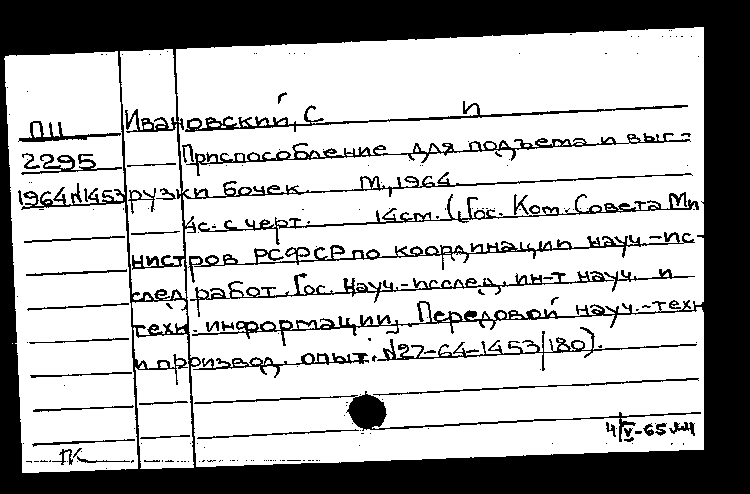 Ивановский, С п
ПП
Приспособление для подъема и выг-
2295
1964 N1453 рузки бочек. М., 1964.
4с. с черт. 14см. (Гос. Ком. Совета Ми-
нистров РСФСР по координации науч.-ис-
след. работ. Гос. науч.-исслед. ин-т науч. и
техн. информации. Передовой науч.-техн
и производ. опыт. N27-64-1453/180).
4/V-65
ПК